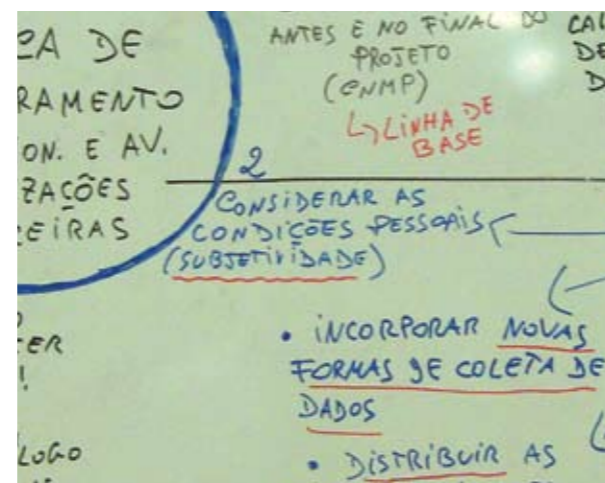 CA DE
RAMENTO
ON. E AV.
ZAÇÕES
EIRAS
ANTES E NO FINAL DO
PROJETO
(CNMP)
↳ LINHA DE
BASE
CAL
DE
D
2
CONSIDERAR AS
CONDIÇÕES PESSOAIS
(SUBJETIVIDADE)
• INCORPORAR NOVAS
FORMAS DE COLETA DE
DADOS
• DISTRIBUIR AS
ER
!
LOGO